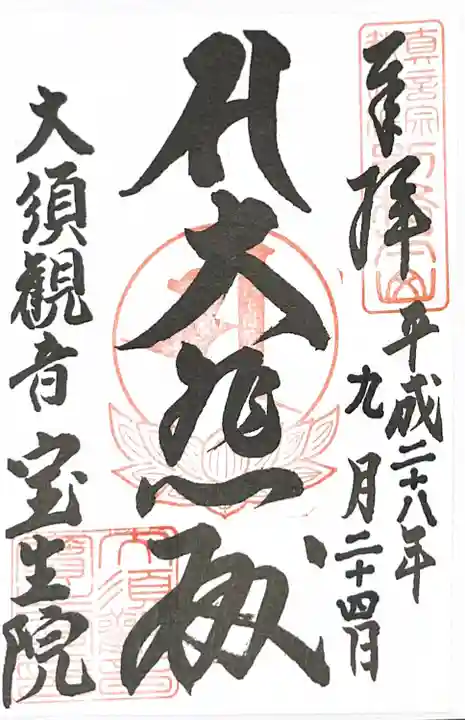 奉拝
平成二十八年
九月二十四日
大悲殿
大須観音
宝生院